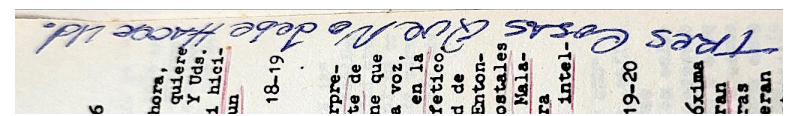 TRES COSAS QUE No debe HACER Ud.
6
hora,
quiere
Y Uds.
i hici-
un
18-19
rpre-
te de
ne que
a voz,
en la
fetico
d de
Enton-
ostales
Mala-
ra
intel-
19-20
óxima
ran
ras
eran